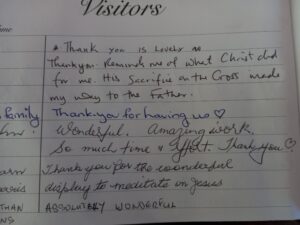 Visitors
Thank you is Lovely
Thankyou. Reminds me of what Christ did
for me. His Sacrifice on the Cross made
my way to the Father.
family
Thank you for having us ♡
Wonderful. Amazing work.
So much time & effort. Thank you ♡
Thank you for the wonderful
display to meditate on Jesus
THAN
ABSOLUTELY WONDERFUL